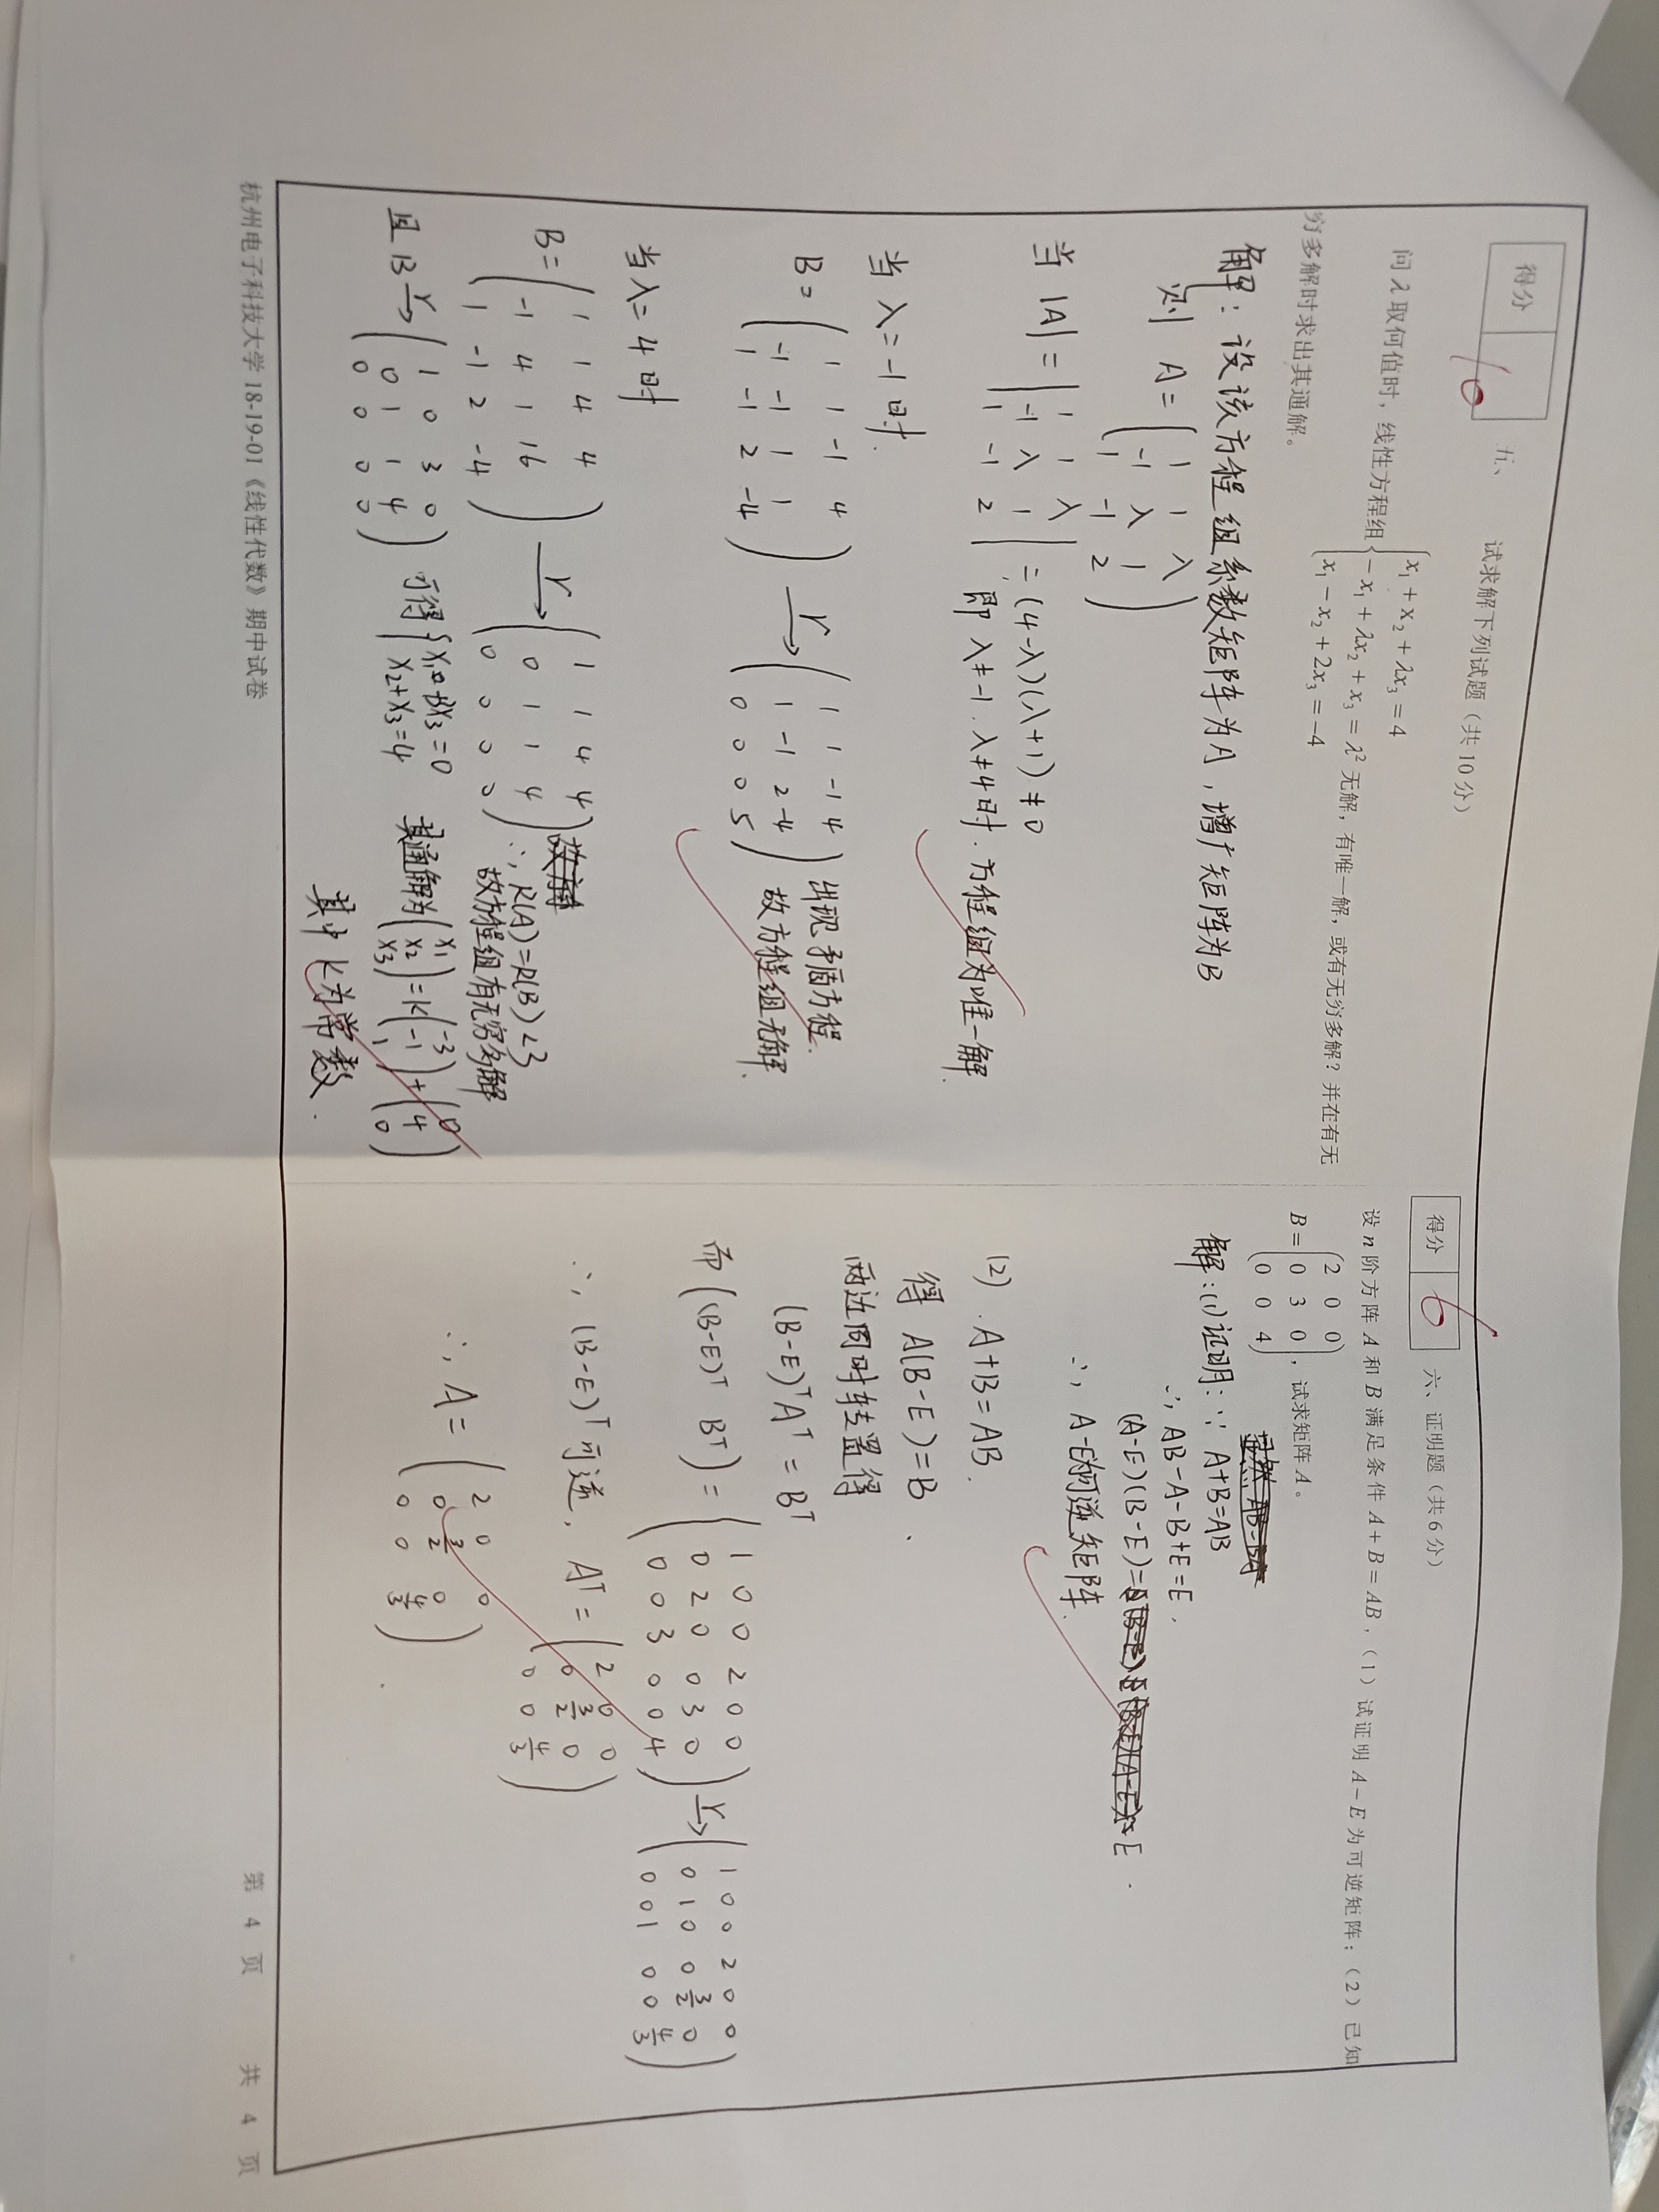 得分 10
五、 试求解下列试题（共 10 分）
问 λ 取何值时，线性方程组 { x₁ + x₂ + λx₃ = 4
− x₁ + λx₂ + x₃ = λ² 无解，有唯一解，或有无穷多解？并在有无
x₁ − x₂ + 2x₃ = −4
穷多解时求出其通解。
解：设该方程组系数矩阵为A，增广矩阵为B
则 A = ( 1 1 λ
-1 λ 1
1 -1 2 )
当 |A| = | 1 1 λ
-1 λ 1
1 -1 2 | = (4-λ)(λ+1) ≠ 0
即 λ≠-1. λ≠4时. 方程组为唯一解.
当 λ=-1 时.
B = ( 1 1 -1 4
-1 -1 1 1
1 -1 2 -4 ) r→ ( 1 1 -1 4
1 -1 2 -4
0 0 0 5 ) 出现矛盾方程.
故方程组无解.
当 λ= 4 时
B = ( 1 1 4 4
-1 4 1 16
1 -1 2 -4 ) r→ ( 1 1 4 4
0 1 1 4
0 0 0 0 )
∴ R(A)=R(B)<3
故方程组有无穷多解
且 B r→ ( 1 0 3 0
0 1 1 4
0 0 0 0 ) 可得 { x₁+3x₃=0
x₂+x₃=4 其通解为 ( x₁
x₂
x₃ ) = k ( -3
-1
1 ) + ( 0
4
0 )
其中 k为常数.
杭州电子科技大学 18-19-01《线性代数》期中试卷
得分 6
六、证明题（共 6 分）
设 n 阶方阵 A 和 B 满足条件 A + B = AB，（1）试证明 A − E 为可逆矩阵；（2）已知
B = ( 2 0 0
0 3 0
0 0 4 )，试求矩阵 A 。
显然 AB=BA
解:(1)证明: ∵ A+B=AB
∴ AB-A-B+E=E.
(A-E)(B-E)= E
∴ A-E为可逆矩阵.
(2) A+B=AB.
得 A(B-E)=B .
两边同时转置得
(B-E)ᵀAᵀ = Bᵀ
而 ( (B-E)ᵀ Bᵀ ) = ( 1 0 0 2 0 0
0 2 0 0 3 0
0 0 3 0 0 4 ) r→ ( 1 0 0 2 0 0
0 1 0 0 3/2 0
0 0 1 0 0 4/3 )
∴ (B-E)ᵀ可逆, Aᵀ = ( 2 0 0
0 3/2 0
0 0 4/3 )
∴ A = ( 2 0 0
0 3/2 0
0 0 4/3 ) .
第 4 页 共 4 页